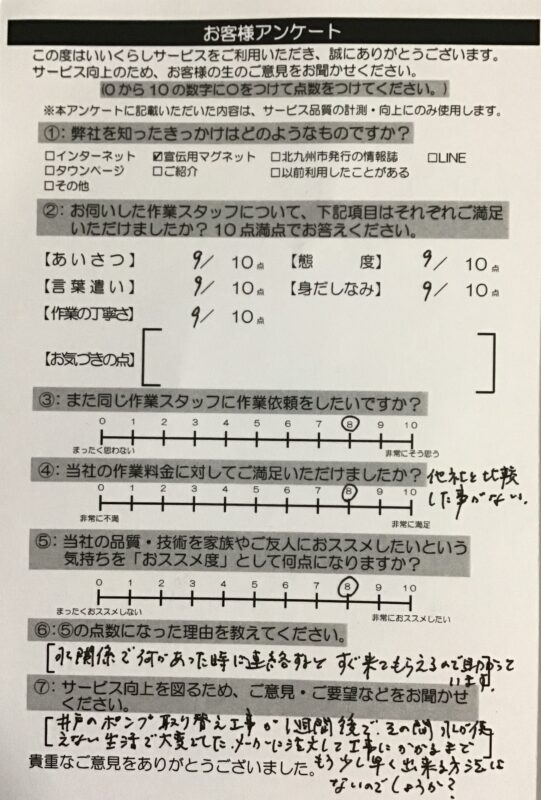 お客様アンケート
この度はいいくらしサービスをご利用いただき、誠にありがとうございます。
サービス向上のため、お客様の生のご意見をお聞かせください。
(0から10の数字に○をつけて点数をつけてください。)
※本アンケートに記載いただいた内容は、サービス品質の計測・向上にのみ使用します。
①：弊社を知ったきっかけはどのようなものですか？
□インターネット ☑宣伝用マグネット □北九州市発行の情報誌 □LINE
□タウンページ □ご紹介 □以前利用したことがある
□その他
②：お伺いした作業スタッフについて、下記項目はそれぞれご満足
いただけましたか？10点満点でお答えください。
【あいさつ】 9/10点 【態 度】 9/10点
【言葉遣い】 9/10点 【身だしなみ】 9/10点
【作業の丁寧さ】 9/10点
【お気づきの点】
③：また同じ作業スタッフに作業依頼をしたいですか？
0 1 2 3 4 5 6 7 8 9 10
まったく思わない 非常にそう思う
④：当社の作業料金に対してご満足いただけましたか？ 他社と比較
した事がない.
0 1 2 3 4 5 6 7 8 9 10
非常に不満 非常に満足
⑤：当社の品質・技術を家族やご友人におススメしたいという
気持ちを「おススメ度」として何点になりますか？
0 1 2 3 4 5 6 7 8 9 10
まったくおススメしない 非常におススメしたい
⑥：⑤の点数になった理由を教えてください。
水関係で何かあった時に連絡すると すぐ来てもらえるので助かって
います.
⑦：サービス向上を図るため、ご意見・ご要望などをお聞かせ
ください。
井戸のポンプ取り替え工事が1週間後で、その間 水が使
えない生活で大変でした.メーカーに注文して工事にかかるまで
貴重なご意見をありがとうございました。
もう少し早く出来る方法は
ないのでしょうか?